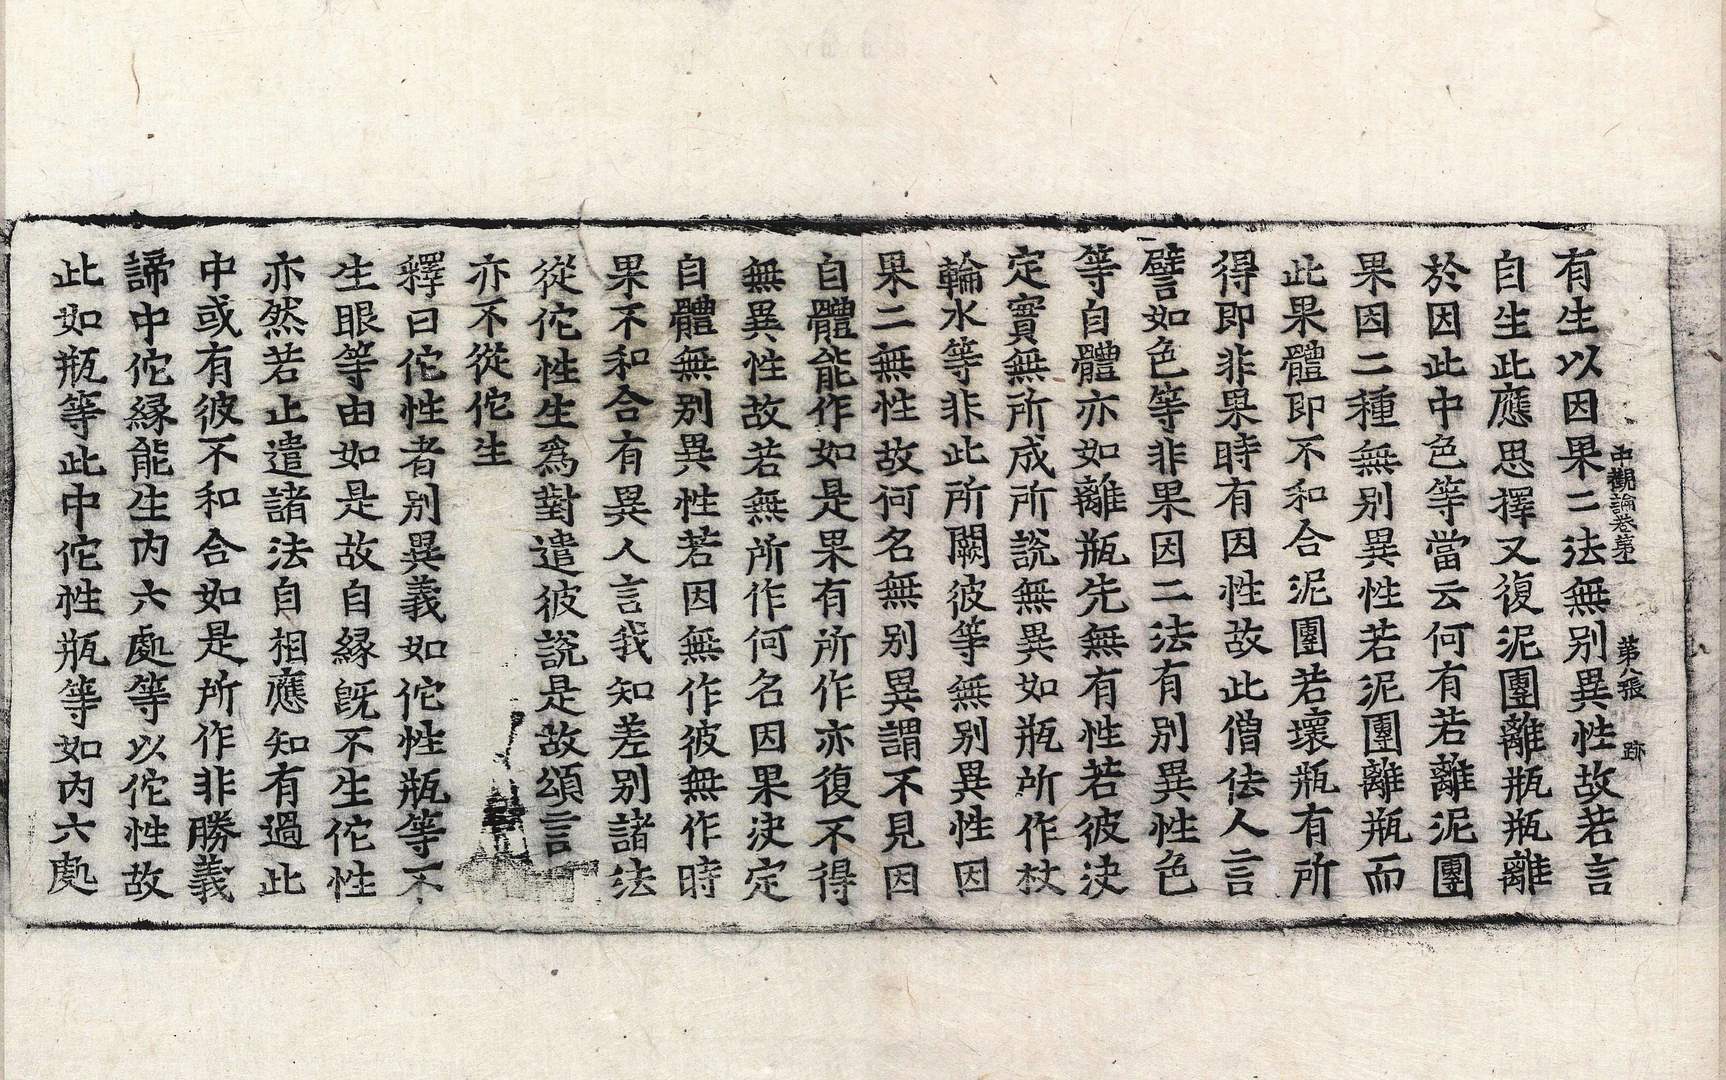 中觀論卷第十一 第八張 跡
有生以因果二法無別異性故若言
自生此應思擇又復泥團離瓶瓶離
於因此中色等當云何有若離泥團
果因二種無別異性若泥團離瓶而
此果體即不和合泥團若壞瓶有所
得即非果時有因性故此僧佉人言
譬如色等非果因二法有別異性色
等自體亦如離瓶先無有性若彼決
定實無所成所說無異如瓶所作杖
輪水等非此所闕彼等無別異性因
果二無性故何名無別異謂不見因
自體能作如是果有所作亦復不得
無異性故若無所作何名因果決定
自體無別異性若因無作彼無作時
果不和合有異人言我知差別諸法
從佗性生爲對遣彼說是故頌言
亦不從佗生
釋曰佗性者別異義如佗性瓶等不
生眼等由如是故自緣旣不生佗性
亦然若止遣諸法自相應知有過此
中或有彼不和合如是所作非勝義
諦中佗緣能生內六處等以佗性故
此如瓶等此中佗性瓶等如內六處